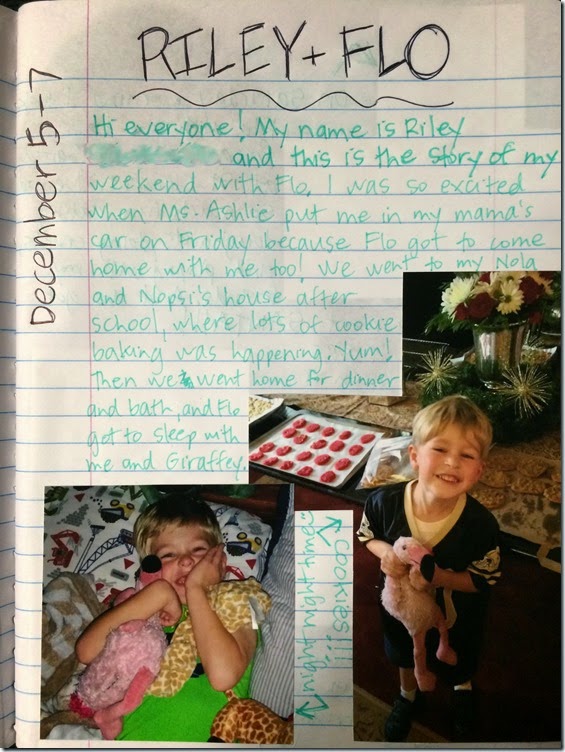 RILEY + FLO
December 5-7
Hi everyone! My name is Riley
and this is the story of my
weekend with Flo. I was so excited
when Ms. Ashlie put me in my mama's
car on Friday because Flo got to come
home with me too! We went to my Nola
and Nopsi's house after
school, where lots of cookie
baking was happening. Yum!
Then we went home for dinner
and bath, and Flo
got to sleep with
me and Giraffey.
Cookies!!!
night night time